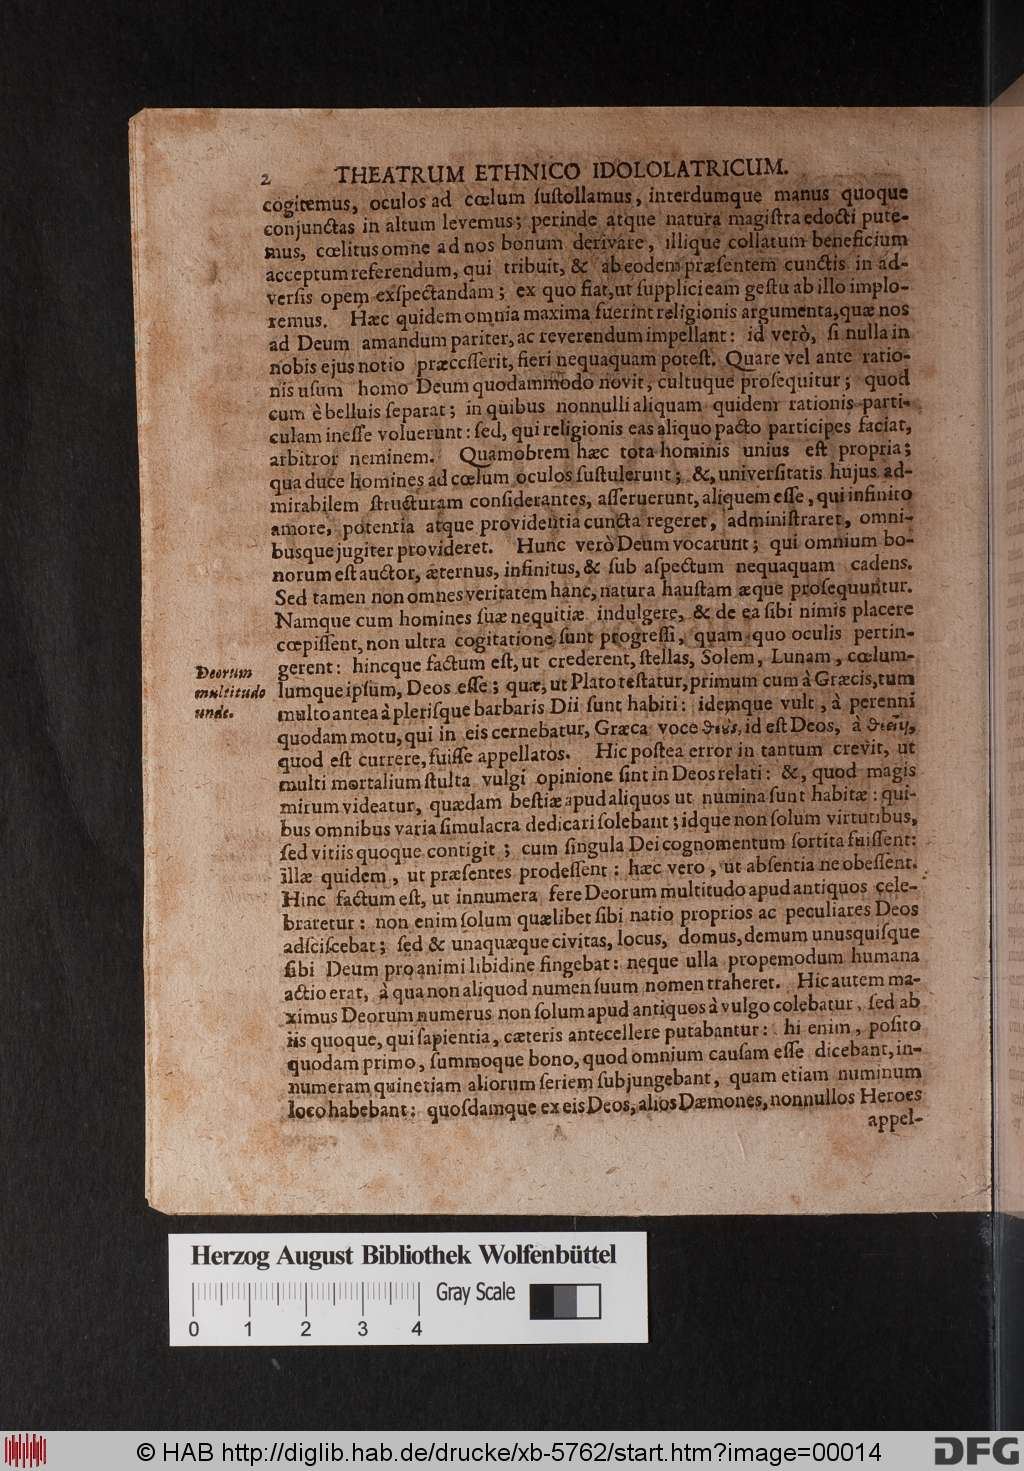 2 THEATRUM ETHNICO IDOLOLATRICUM.
cogitemus, oculos ad cœlum ſuſtollamus, interdumque manus quoque
conjunctas in altum levemus; perinde atque natura magiſtra edocti pute-
mus, cœlitus omne ad nos bonum derivare, illique collatum beneficium
acceptum referendum, qui tribuit, & ab eodem præſentem cunctis in ad-
verſis opem exſpectandam; ex quo fiat, ut ſupplici eam geſtu ab illo implo-
remus. Hæc quidem omnia maxima fuerint religionis argumenta, quæ nos
ad Deum amandum pariter, ac reverendum impellant: id verò, ſi nulla in
nobis ejus notio præceſſerit, fieri nequaquam poteſt. Quare vel ante ratio-
nis uſum homo Deum quodammodo novit, cultuque proſequitur; quod
cum è belluis ſeparat; in quibus nonnulli aliquam quidem rationis parti-
culam ineſſe voluerunt: ſed, qui religionis eas aliquo pacto participes faciat,
arbitror neminem. Quamobrem hæc tota hominis unius eſt propria;
qua duce homines ad cœlum oculos ſuſtulerunt; &, univerſitatis hujus ad-
mirabilem ſtructuram conſiderantes, aſſeruerunt, aliquem eſſe, qui infinito
amore, potentia atque providentia cuncta regeret, adminiſtraret, omni-
busque jugiter provideret. Hunc verò Deum vocarunt; qui omnium bo-
norum eſt auctor, æternus, infinitus, & ſub aſpectum nequaquam cadens.
Sed tamen non omnes veritatem hanc, natura hauſtam æque proſequuntur.
Namque cum homines ſuæ nequitiæ indulgere, & de ea ſibi nimis placere
cœpiſſent, non ultra cogitatione ſunt progreſſi, quam quo oculis pertin-
gerent: hincque factum eſt, ut crederent, ſtellas, Solem, Lunam, cœlum-
lumque ipſum, Deos eſſe; quæ, ut Plato teſtatur, primum cum à Græcis, tum
multo antea à pleriſque barbaris Dii ſunt habiti: idemque vult, à perenni
quodam motu, qui in eis cernebatur, Græca voce ϑεὺς, id eſt Deos, à ϑέειν,
quod eſt currere, fuiſſe appellatos. Hic poſtea error in tantum crevit, ut
multi mortalium ſtulta vulgi opinione ſint in Deos relati: &, quod magis
mirum videatur, quædam beſtiæ apud aliquos ut numina ſunt habitæ: qui-
bus omnibus varia ſimulacra dedicari ſolebant; idque non ſolum virtutibus,
ſed vitiis quoque contigit; cum ſingula Dei cognomentum ſortita fuiſſent:
illæ quidem, ut præſentes prodeſſent: hæc vero, ut abſentia ne obeſſent.
Hinc factum eſt, ut innumera fere Deorum multitudo apud antiquos cele-
braretur: non enim ſolum quælibet ſibi natio proprios ac peculiares Deos
adſciſcebat; ſed & unaquæque civitas, locus, domus, demum unusquiſque
ſibi Deum pro animi libidine fingebat: neque ulla propemodum humana
actio erat, à qua non aliquod numen ſuum nomen traheret. Hic autem ma-
ximus Deorum numerus non ſolum apud antiquos à vulgo colebatur, ſed ab
iis quoque, qui ſapientia, cæteris antecellere putabantur: hi enim, poſito
quodam primo, ſummoque bono, quod omnium cauſam eſſe dicebant, in-
numeram quinetiam aliorum ſeriem ſubjungebant, quam etiam numinum
loco habebant: quoſdamque ex eis Deos, alios Dæmones, nonnullos Heroes
appel-
Deorum
multitudo
unde.
Herzog August Bibliothek Wolfenbüttel
Gray Scale
0 1 2 3 4
© HAB http://diglib.hab.de/drucke/xb-5762/start.htm?image=00014
DFG